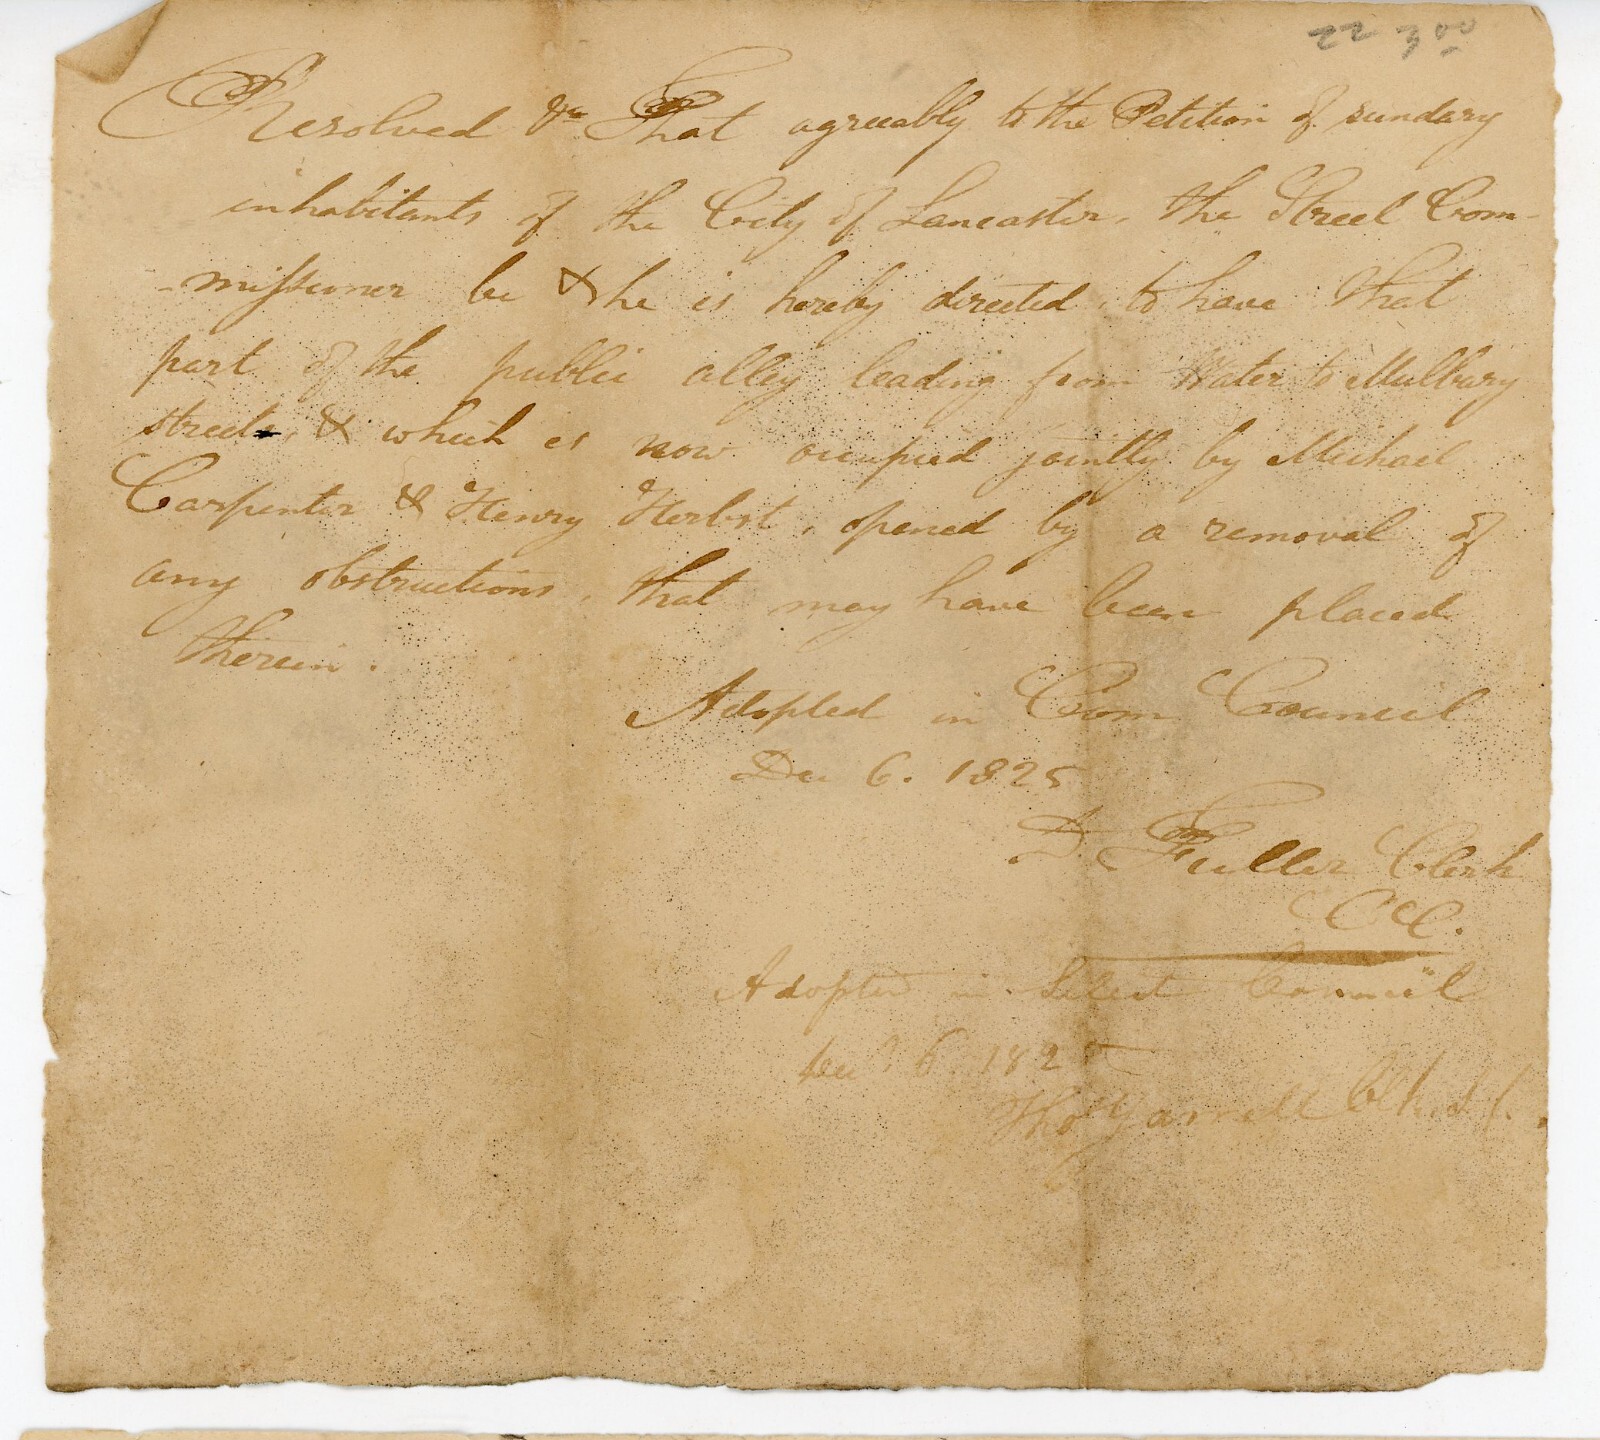 22 3 00
Resolved &c That agreeably to the Petition of sundary
inhabitants of the City of Lancaster, the Street Com-
-missioner be & he is hereby directed, to have that
part of the public alley leading from Water to Mulbury
streets, & which is now occupied jointly by Michael
Carpenter & Henry Herbst, opened by a removal of
any obstructions, that may have been placed
therein.
Adopted in Com Council
Dec 6. 1825
D. Fuller Clerk
CC.
Adopted in Select Council
Dec 6. 1825
Tho Clk. S. C.